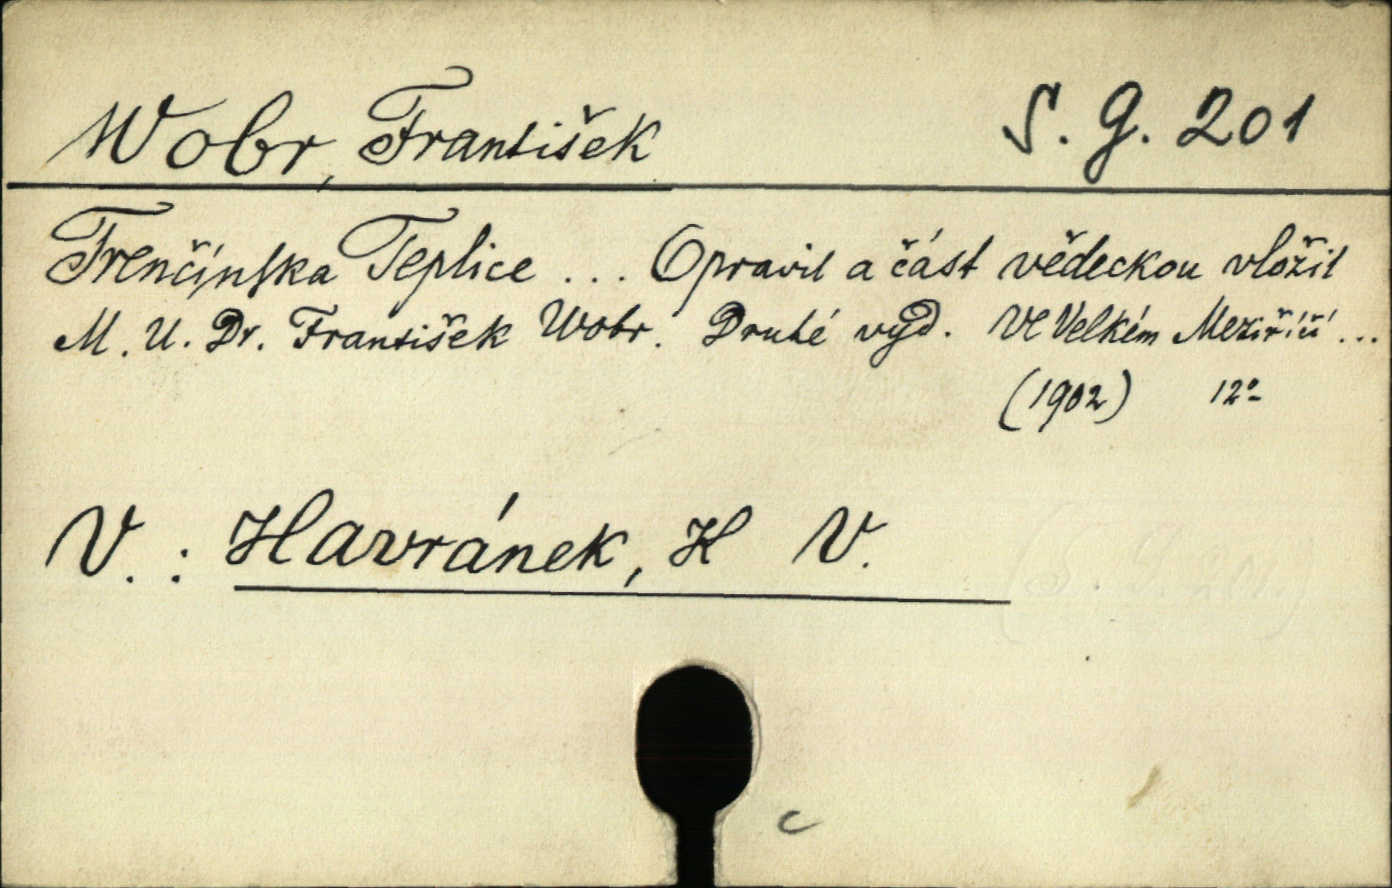 Wobr, František S. G. 201
Trenčínska Teplice ... Opravil a část vědeckou vložil
M. U. Dr. František Wobr. Druhé vyd. Ve Velkém Meziříčí ...
(1902) 12°
V. : Havránek, K V.
(S. G. 201.)
c